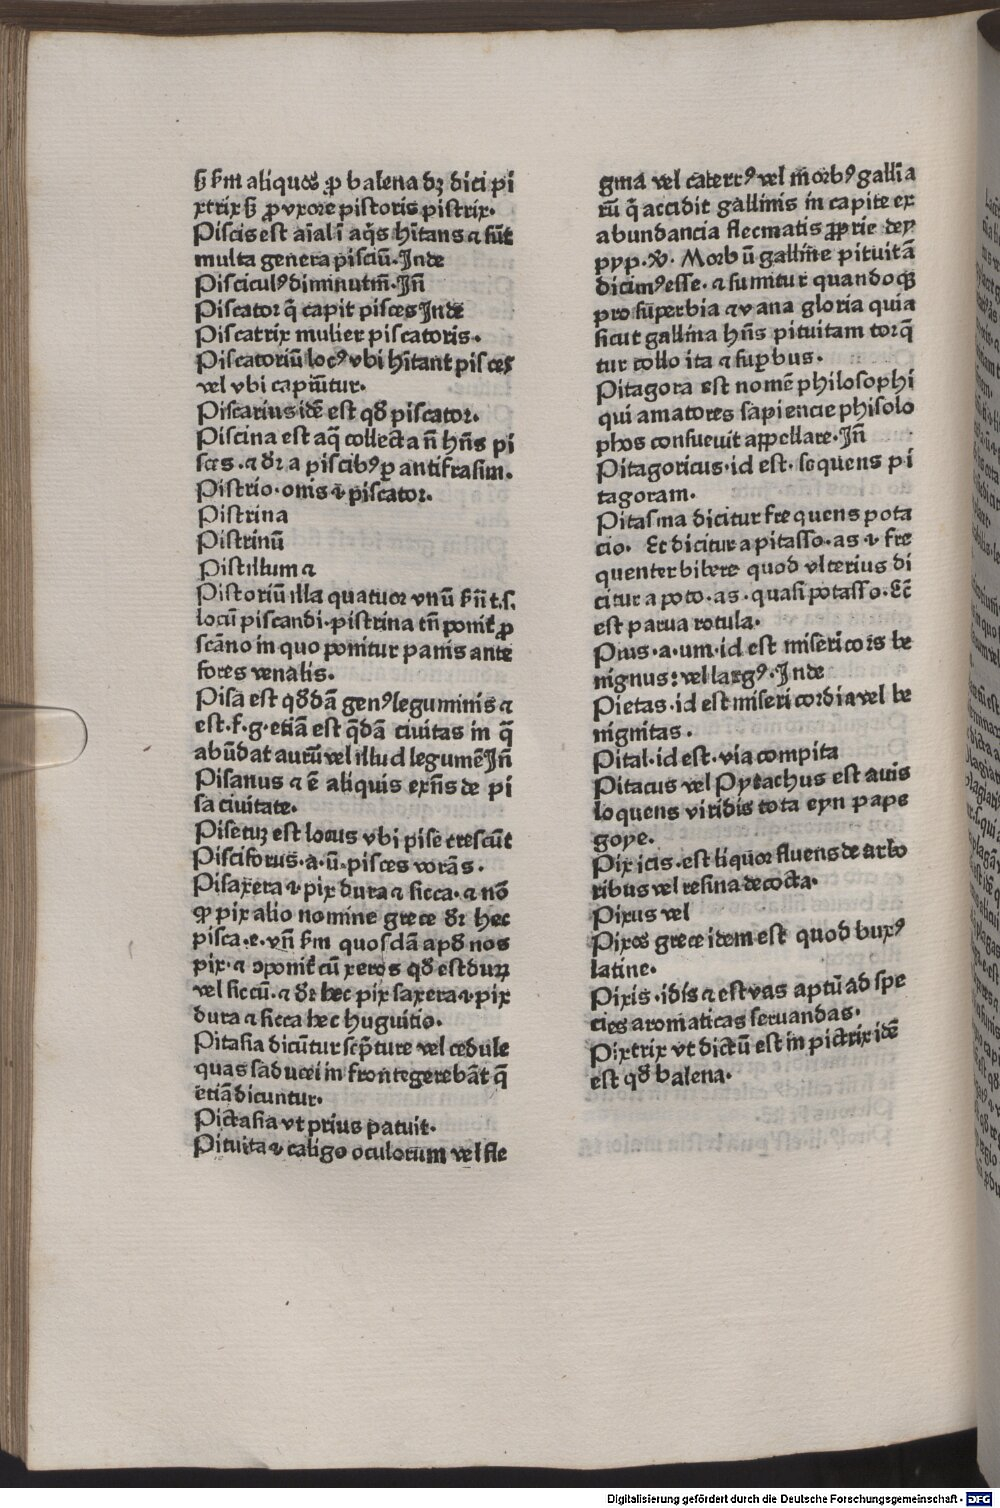 ꝫ ẜm aliquos ꝓ balena dꝫ dici pi
xtrix ꝫ ꝓ vxore pistoris pistrix.
Piscis est aīal ī aq̄s hītans ⁊ sūt
multa genera pisciū. Inde
Pisciculꝰ diminutm̄. Iñ
Piscator q̄ capit pisces Inde
Piscatrix mulier piscatoris.
Piscatoriū locꝰ vbi hītant pisces
vel vbi capiūtur.
Piscarius idē est qđ piscator.
Piscina est aq̄ collecta ñ hñs pi
sces. ⁊ dr̄ a piscibꝰ ꝑ antifrasim.
Pistrio. onis ē piscator.
Pistrina
Pistrinū
Pistillum ⁊
Pistoriū illa quatuor vnū ẜñt.s.
locū piscandi. pistrina tñ ponit̄ ꝓ
scāno in quo ponitur panis ante
fores venalis.
Pisa est qđdā genꝰ leguminis ⁊
est. f. g. etiā est q̄dā ciuitas in q̄
abūdat aurū vel illud legumē Iñ
Pisanus ⁊ ē aliquis exñs de pi
sa ciuitate.
Pisetuꝫ est locus vbi pise crescūt
Pisciforus. a. ū. pisces vorās.
Pisaxera ē pix dura ⁊ sicca. ⁊ nō
ꝙ pix alio nomine grece dr̄ hec
pisca. e. vñ ẜm quosdā apđ nos
pix. ⁊ ꝯponit̄ cū xeros qđ est duꝝ
vel siccū. ⁊ dr̄ hec pix saxera ē pix
dura ⁊ sicca hec huguitio.
Pitasia dicūtur scp̄ture vel cedule
quas saducei in fronte gerebāt q̄
etiā dicuntur.
Pictasia vt prius patuit.
Pituita ē caligo oculorum vel fle
gma vel caterrꝰ vel morbꝰ gallia
rū q̄ accidit gallinis in capite ex
abundancia flecmatis ꝓprie
pyp. Morbū galline pituitā
dicimꝰ esse. ⁊ sumitur quandoqꝫ
pro superbia ⁊ vana gloria quia
sicut gallina hñs pituitam torq̄
tur collo ita ⁊ suꝑbus.
Pitagora est nomē philosophi
qui amatores sapiencie phisolo
phos consueuit appellare. Iñ
Pitagoricus. id est. sequens pi
tagoram.
Pitasma dicitur frequens pota
cio. Et dicitur a pitasso. as ē fre
quenter bibere quod vlterius di
citur a poto. as. quasi potasso. Ec̄
est parua rotula.
Pius. a. um. id est misericors be
nignus: vel largꝰ. Inde
Pietas. id est misericordia vel be
nignitas.
Pital. id est. via compita
Pitacus vel Pytachus est auis
loquens viridis tota eyn pape
goye.
Pix icis. est liquor fluens de arbo
ribus vel resina decocta.
Pixus vel
Pixos grece idem est quod buxꝰ
latine.
Pixis. idis ⁊ est vas aptū ad spe
cies aromaticas seruandas.
Pixtrix vt dictū est in pictrix idē
est qđ balena.
Digitalisierung gefördert durch die Deutsche Forschungsgemeinschaft - DFG